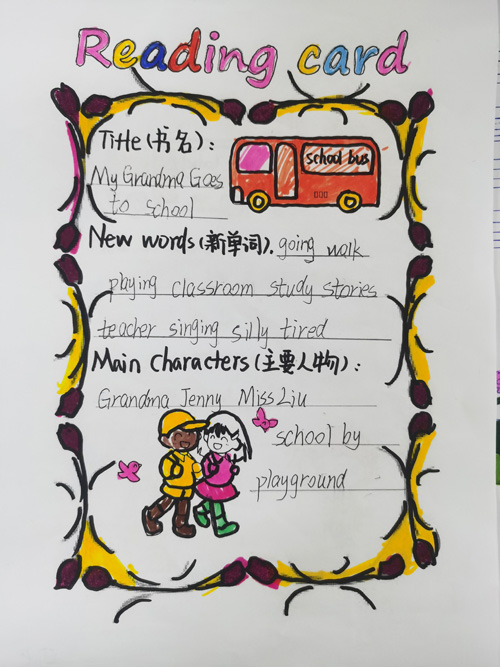 Reading card
Title(书名):
school bus
My Grandma Goes
to school
New words(新单词). going walk
playing classroom study stories
teacher singing silly tired
Main characters(主要人物):
Grandma Jenny Miss Liu
school by
playground